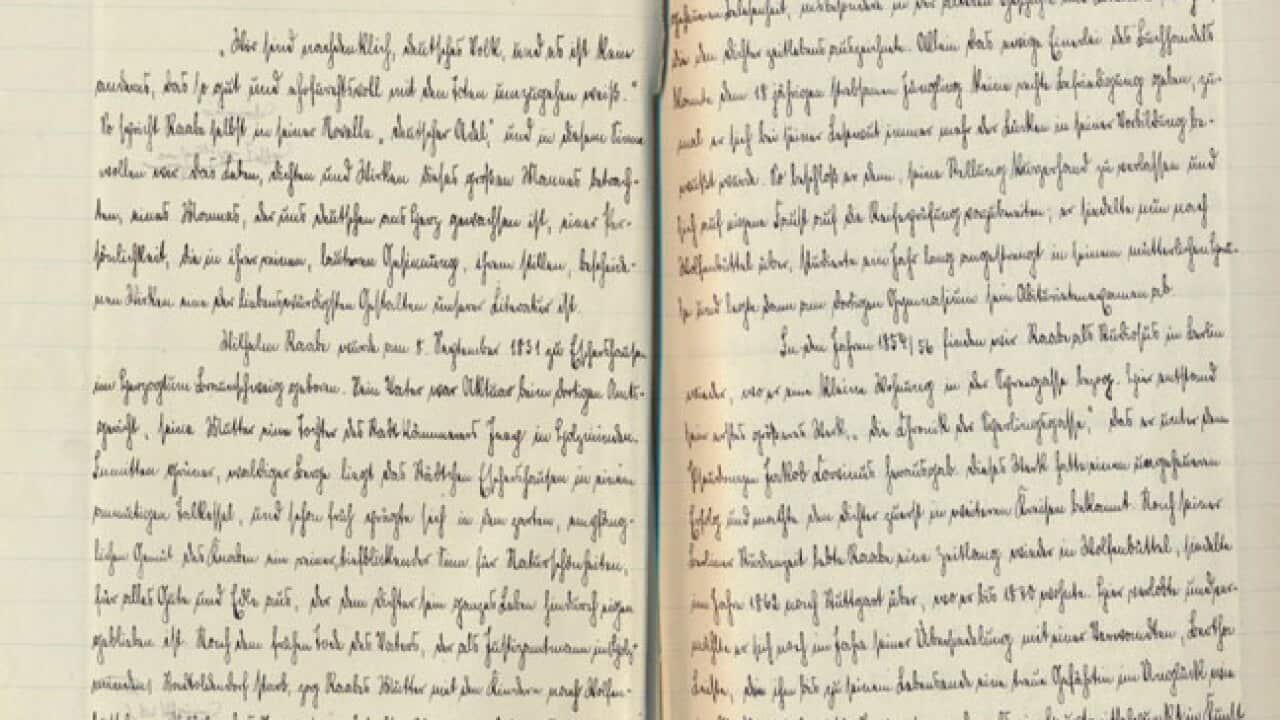 „Wir sind nachdenklich, deutsches Volk, und es ist kein
anderes, das so gut und ehrfurchtsvoll mit den Toten umzugehen weiß."
So spricht Raabe selbst in seiner Novelle „Deutscher Adel", und in diesem Sinne
wollen wir das Leben, Dichten und Wirken dieses großen Mannes betrach-
ten, eines Mannes, der uns Deutschen ans Herz gewachsen ist, einer Per-
sönlichkeit, die in ihrer reinen, lauteren Gesinnung, ihrem stillen, bescheide-
nen Wirken eine der liebenswürdigsten Gestalten unserer Literatur ist.
Wilhelm Raabe wurde am 8. September 1831 zu Eschershausen
im Herzogtum Braunschweig geboren. Sein Vater war Aktuar beim dortigen Amts-
gericht, seine Mutter eine Tochter des Ratskämmerers Jeep in Holzminden.
Inmitten grüner, waldiger Berge liegt das Städtchen Eschershausen in einem
anmutigen Talkessel, und schon früh prägte sich in dem zarten, empfäng-
lichen Gemüt des Knaben ein reiner, tiefblickender Sinn für Naturschönheiten,
für alles Gute und Edle aus, der dem Dichter sein ganzes Leben hindurch eigen
geblieben ist. Nach dem frühen Tode des Vaters, der als Justizamtmann in Holz-
minden, Stadtoldendorf starb, zog Raabes Mutter mit den Kindern nach Wolfen-
Belesenheit, insbesondere in der älteren
die den Dichter zeitlebens auszeichnete. Allein das ewige Einerlei des Buchhandels
konnte dem 18 jährigen strebsamen Jüngling keine rechte Befriedigung geben, zu-
mal er sich bei seiner Lesewut immer mehr der Lücken in seiner Vorbildung be-
wußt wurde. So beschloß er denn, seine Stellung kurzerhand zu verlassen und
sich auf eigene Faust auf die Reifeprüfung vorzubereiten; er siedelte nun nach
Wolfenbüttel über, studierte ein Jahr lang angestrengt in seinem mütterlichen Hau-
se und legte dann am dortigen Gymnasium sein Abiturientenexamen ab.
In den Jahren 1854/56 finden wir Raabe als Studiosus in Berlin
wieder, wo er eine kleine Wohnung in der Spreegasse bezog. Hier entstand
sein erstes größeres Werk, „die Chronik der Sperlingsgasse," das er unter dem
Pseudonym Jakob Corvinus herausgab. Dieses Werk hatte einen ungeheuren
Erfolg und machte den Dichter zuerst in weiteren Kreisen bekannt. Nach seiner
Berliner Studienzeit lebte Raabe eine Zeitlang wieder in Wolfenbüttel, siedelte
im Jahre 1862 nach Stuttgart über, wo er bis 1870 wohnte. Hier verlobte und ver-
mählte er sich noch im Jahre seiner Übersiedelung mit einer Verwandten, Bertha
Leiste, die ihm bis zu seinem Lebensende eine treue Gefährtin im Unglück wie